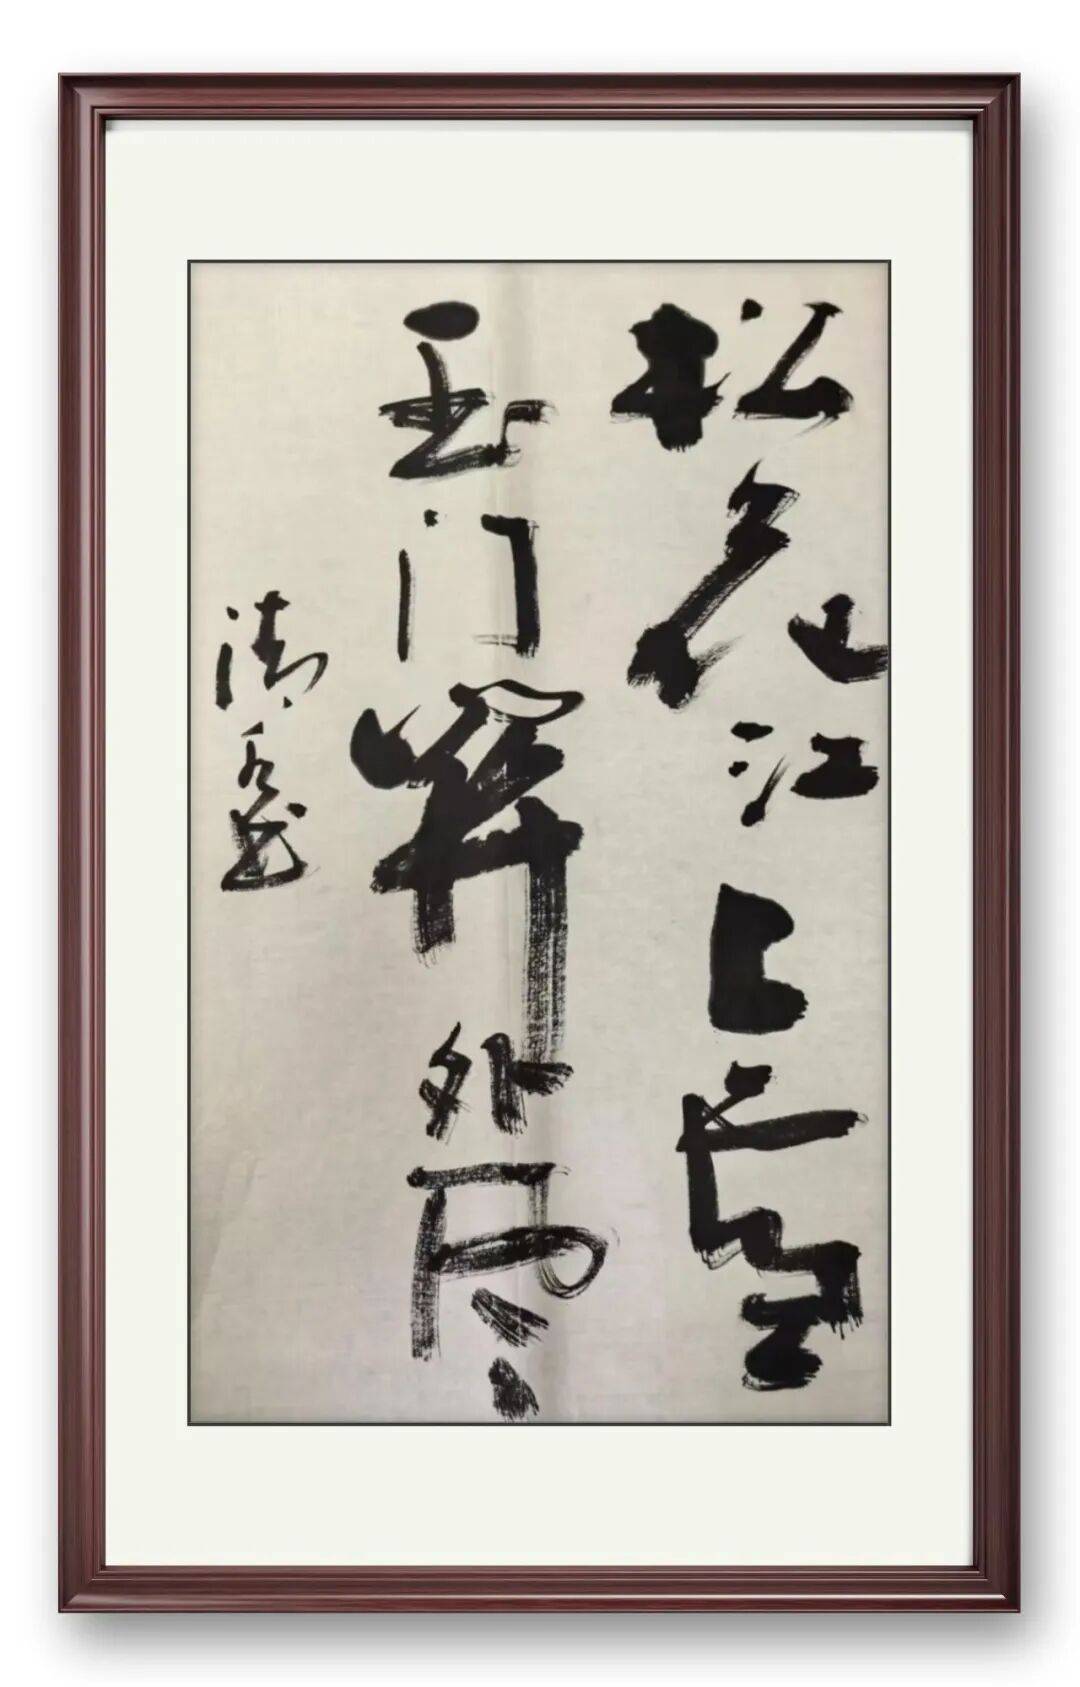 松花江上雪
玉门关外风
清